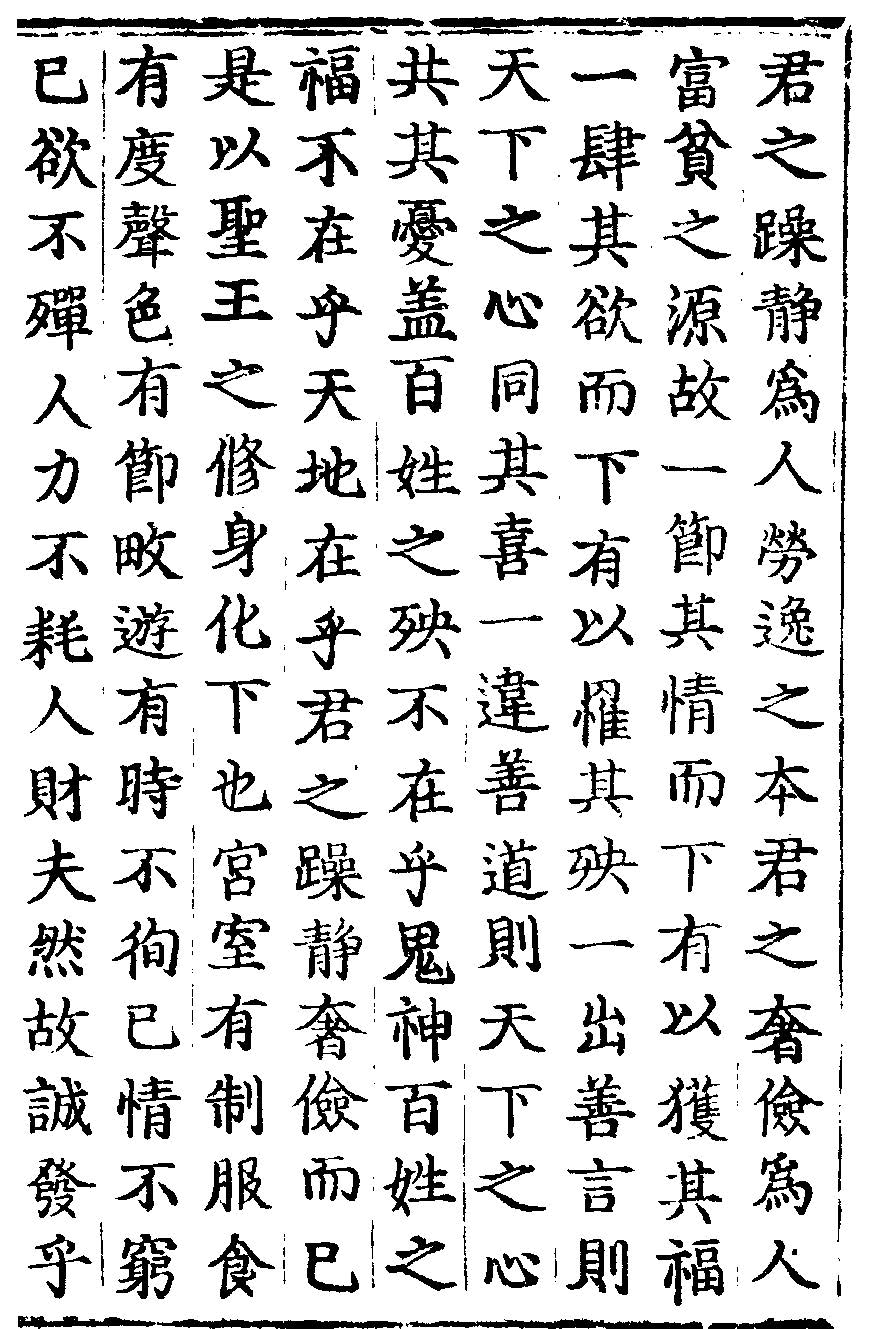 君之躁静爲人勞逸之本君之奢儉爲人
富貧之源故一節其情而下有以獲其福
一肆其欲而下有以罹其殃一出善言則
天下之心同其喜一違善道則天下之心
共其憂盖百姓之殃不在乎鬼神百姓之
福不在乎天地在乎君之躁静奢儉而已
是以聖王之修身化下也宮室有制服食
有度聲色有節畋遊有時不徇已情不窮
已欲不殫人力不耗人財夫然故誠發乎